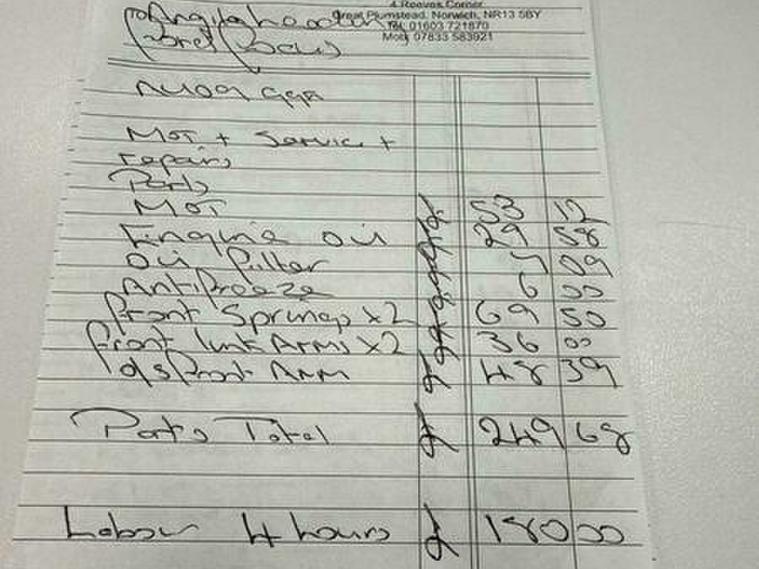 4 Reeves Corner
Great Plumstead, Norwich, NR13 5BY
Tel: 01603 721870
Mob: 07833 583921
To
Ford Focus
AU09
MOT + Service +
repairs
Parts
MOT £ 53 12
Engine Oil £ 29 58
Oil filter £ 7 09
Antifreeze £ 6 00
front Springs x2 £ 69 50
front link Arms x2 £ 36 00
o/s front Arm £ 48 39
Parts Total £ 249 68
Labour 4 hours £ 180 00